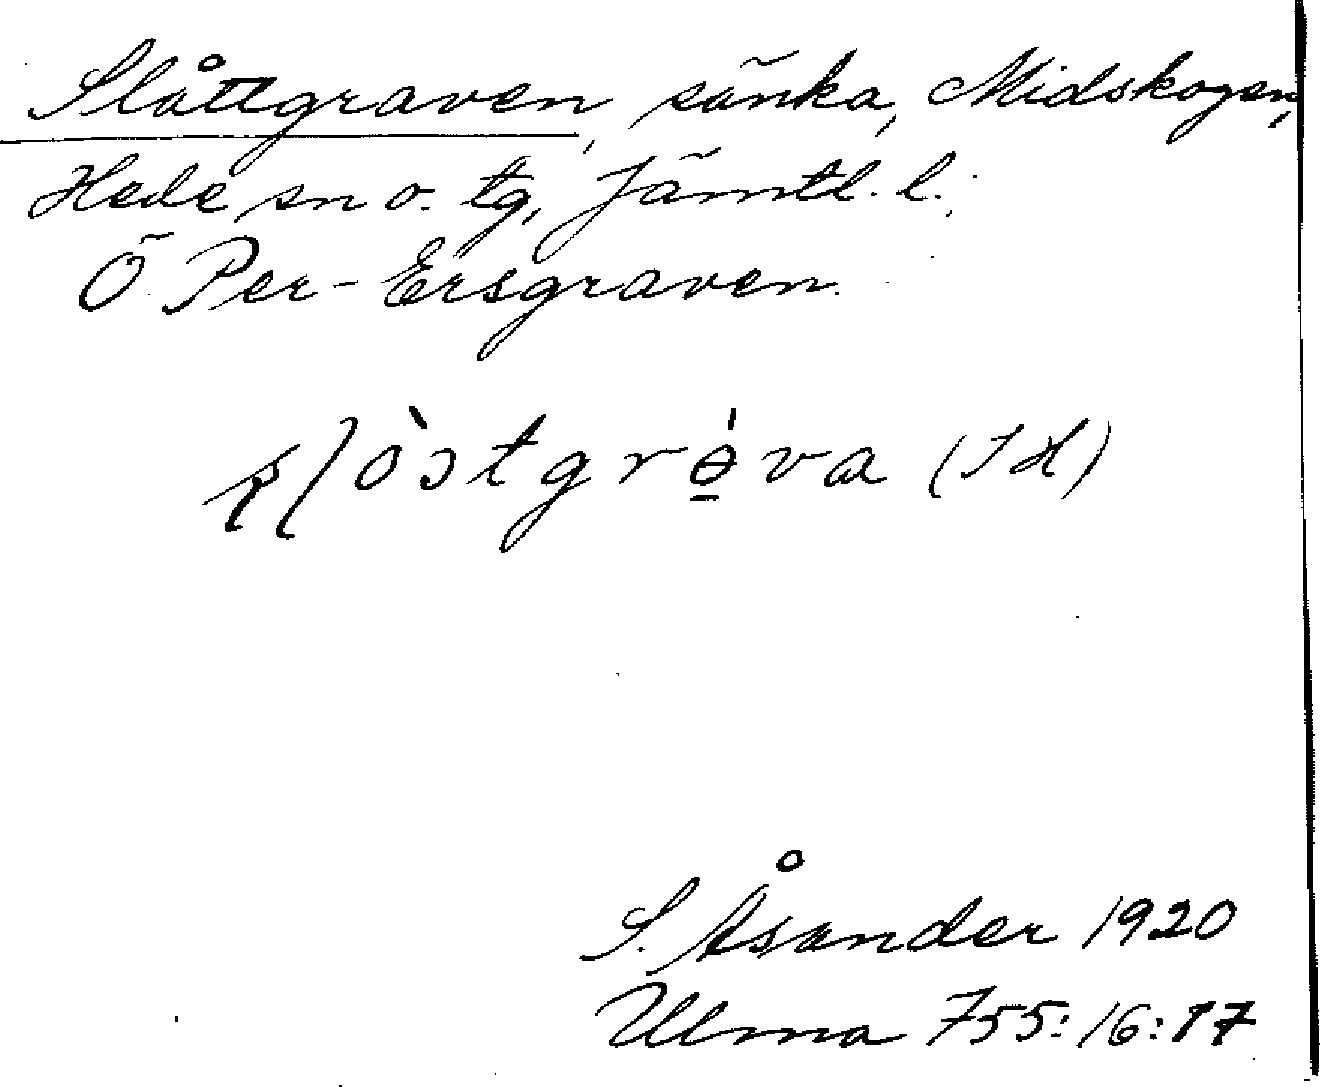 Slåttgraven, sänka, Midskogen,
Hede sn o. tg, Jämtl. l.
Ö Per-Ersgraven.
(IH)
S. Åsander 1920
Ulma 755:16:17